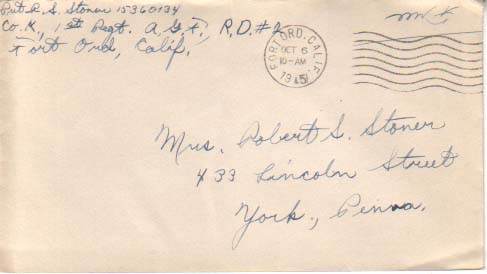 Pvt. R. S. Stoner 15360134
Co. K., 1st Regt. A.G.F., R.D. #2
Fort Ord, Calif.
FORT ORD. CALIF.
OCT 6
10-AM
1945
Mrs. Robert S. Stoner
433 Lincoln Street
York., Penna.